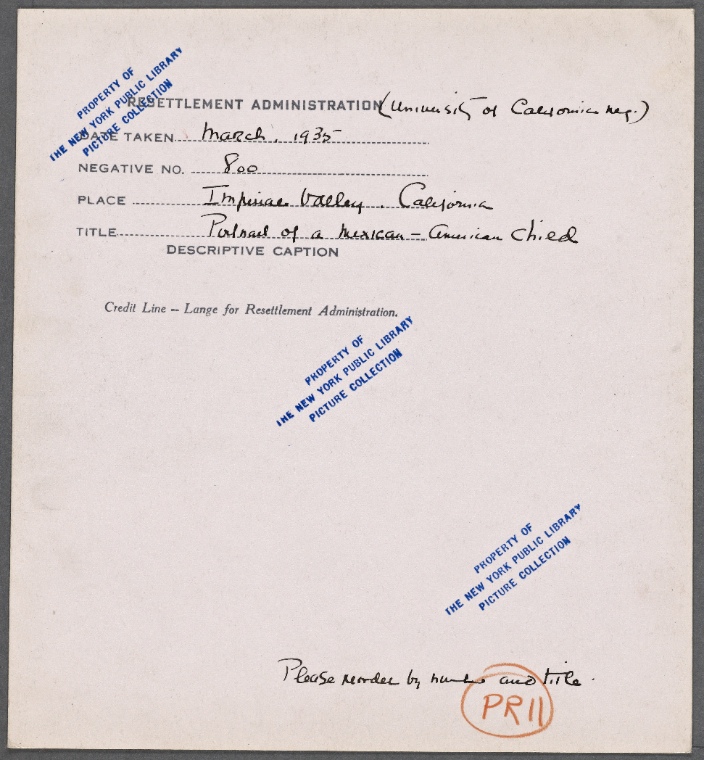 PROPERTY OF
THE NEW YORK PUBLIC LIBRARY
PICTURE COLLECTION
RESETTLEMENT ADMINISTRATION (University of California neg.)
DATE TAKEN March, 1935
NEGATIVE NO. 800
PLACE Imperial Valley. California
TITLE Portrait of a Mexican-American child
DESCRIPTIVE CAPTION
Credit Line — Lange for Resettlement Administration.
PROPERTY OF
THE NEW YORK PUBLIC LIBRARY
PICTURE COLLECTION
PROPERTY OF
THE NEW YORK PUBLIC LIBRARY
PICTURE COLLECTION
Please reorder by number and title.
PR11